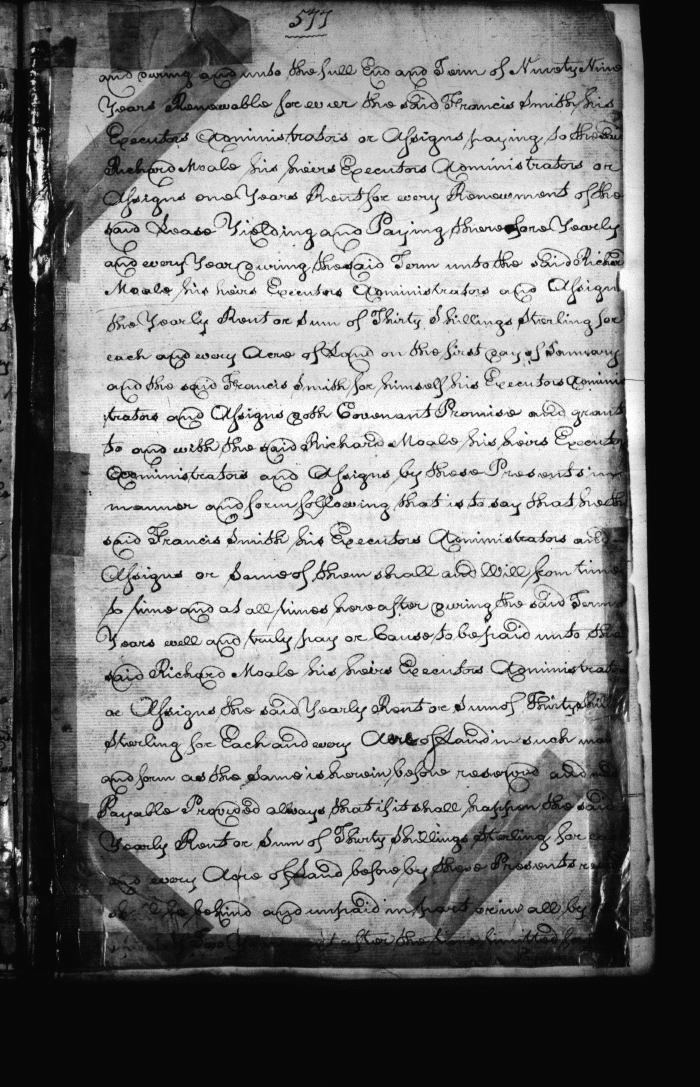 577
and during and unto the full End and Term of Ninety Nine
Years Renewable for ever the said Francis Smith his
Executors Administrators or Assigns paying to the sai
Richard Moale his heirs Executors Administrators or
Assigns one Years Rent for every Renewment of the
said Lease Yielding and Paying therefore Yearly
and every Year during the said Term unto the said Richar
Moale his heirs Executors Administrators and Assign
the Yearly Rent or Sum of Thirty Shillings Sterling for
each and every Acre of Land on the first day of January
and the said Francis Smith for himself his Executors Adminis
trators and Assigns doth Covenant Promise and grant
to and with the said Richard Moale his heirs Executo
Administrators and Assigns by these Presents in
manner and form following that is to say that he the
said Francis Smith his Executors Administrators and
Assigns or Some of them shall and Will from time
to time and at all times hereafter during the said Term
Years well and truly pay or Cause to be paid unto the
said Richard Moale his heirs Executors Administrato
or Assigns the said Yearly Rent or Sum of Thirty Shil
Sterling for Each and every Acre of Land in such man
and form as the Same is herein before reserved and
Payable Provided always that if it shall happen the said
Yearly Rent or Sum of Thirty Shillings Sterling for
and every Acre of Land before by these Presents re
be behind and unpaid in part or in all by
after the time limitted for